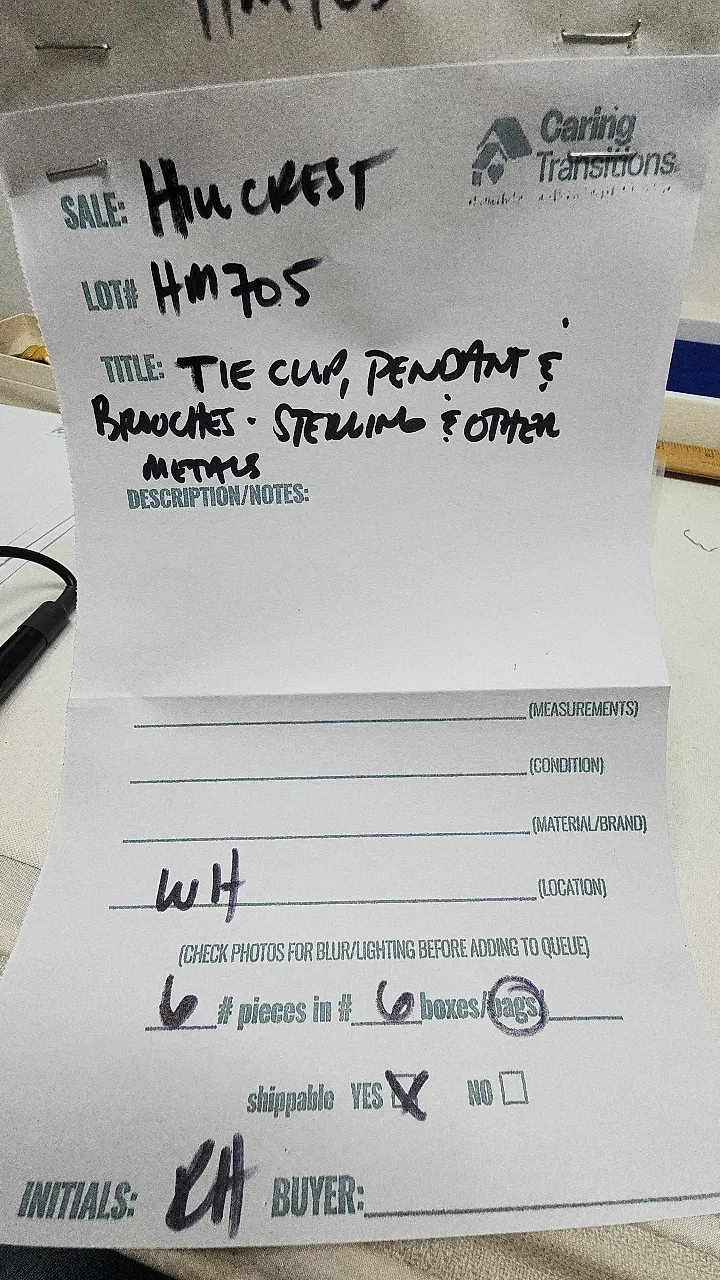 HM705
Caring
Transitions
SALE: HILLCREST
LOT# HM705
TITLE: TIE CLIP, PENDANT &
BRAUCHES. STERLING & OTHER
METALS
DESCRIPTION/NOTES:
(MEASUREMENTS)
(CONDITION)
(MATERIAL/BRAND)
WH (LOCATION)
(CHECK PHOTOS FOR BLUR/LIGHTING BEFORE ADDING TO QUEUE)
6 # pieces in # 6 boxes/bags
shippable YES X NO
INITIALS: RH BUYER: